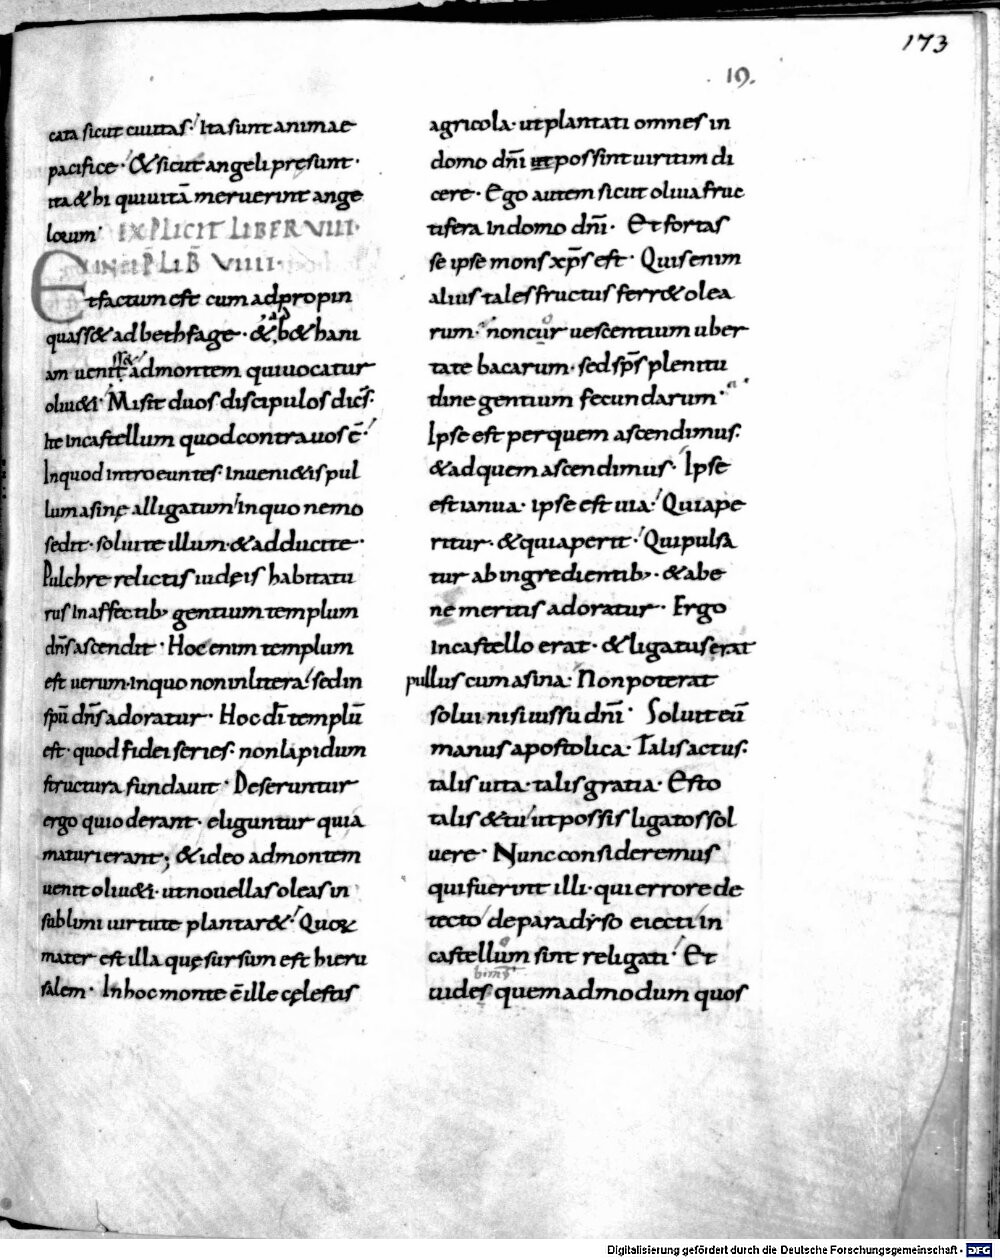 173
19.
cata sicut ciuitas· Ita sunt animae
pacifice· & sicut angeli pręsunt·
ita & hi qui uitā meruerint ange
lorum· EXPLICIT LIBER VIII·
INCIP̄ LIB̄ VIIII·
Et factum est cum adpropin
quass& ad bethfage· & b&hani
am uenit ad montem qui uocatur
oliu&i· Misit duos discipulos dic̄s·
Ite in castellum quod contra uos ē·
In quod introeuntes· inueni&is pul
lum asinę alligatum in quo nemo
sedit· soluite illum· & adducite·
Pulchre relictis iudęis habitatu
rus in affectib; gentium templum
dn̄s ascendit· Hoc enim templum
est uerum· in quo non in littera sed in
spū dn̄s adoratur· Hoc dī templū
est· quod fidei series· non lapidum
structura fundauit· Deseruntur
ergo qui oderant· eliguntur qui a
maturi erant; & ideo ad montem
uenit oliu&i· ut nouellas oleas in
sublimi uirtute plantar&· Quoꝝ
mater est illa quę sursum est hieru
salem· In hoc monte ē ille cęlestis
agricola· ut plantati omnes in
domo dn̄i ut possint uiritim di
cere· Ego autem sicut oliua fruc
tifera in domo dn̄i· Et fortas
se ipse mons xp̄s est· Quis enim
alius tales fructus ferr& olea
rum· non cur uescentium uber
tate bacarum· sed sp̄s plenitu
dine gentium fecundarum·
Ipse est per quem ascendimus·
& ad quem ascendimus· Ipse
est ianua· ipse est uia· Qui ape
ritur· & qui aperit· Qui pulsa
tur ab ingredientib;· & abe
ne meritis adoratur· Ergo
in castello erat· & ligatus erat
pullus cum asina· Non poterat
solui nisi iussu dn̄i· Soluit eū
manus apostolica· Talis actus·
talis uita· talis gratia· Esto
talis & tu ut possis ligatos sol
uere· Nunc consideremus
qui fuerint illi· qui errore de
tecto de paradyso eiecti in
castellum sint religati· Et
uides quemadmodum quos
Digitalisierung gefördert durch die Deutsche Forschungsgemeinschaft - DFG